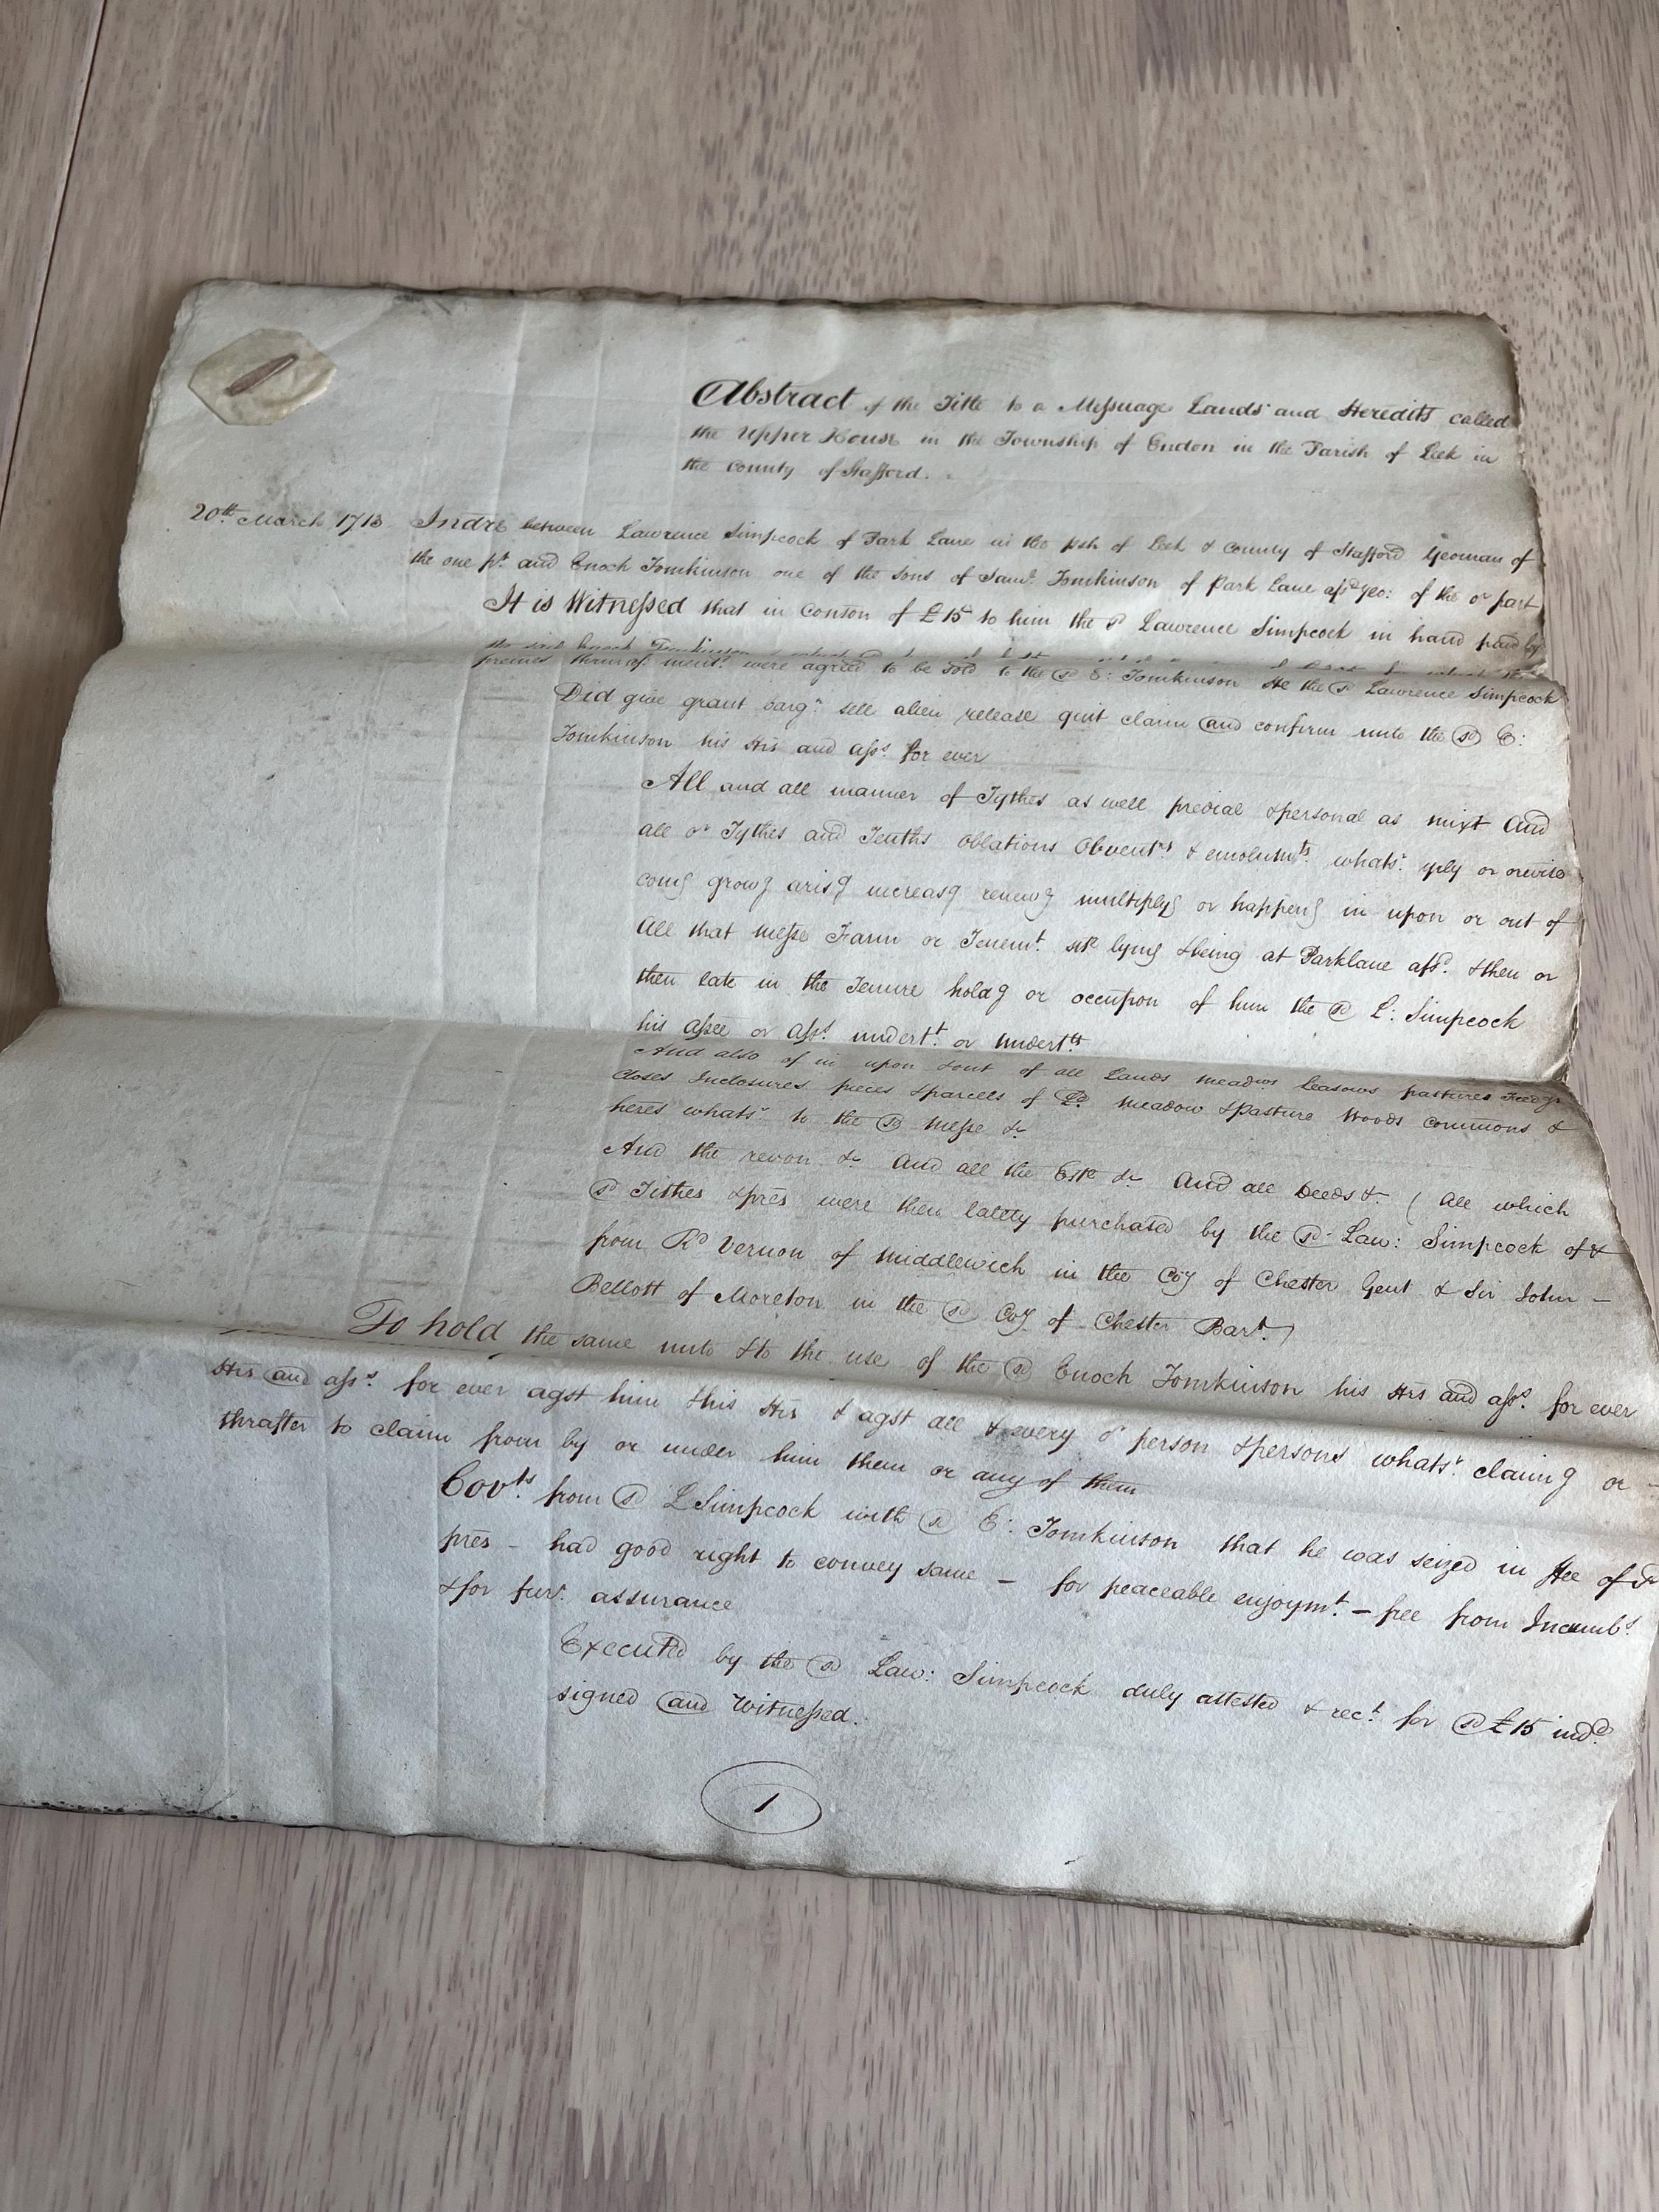 Abstract of the Title to a Messuage Lands and Heredits called
the Upper House in the Township of Endon in the Parish of Leek in
the County of Stafford.
20th March 1713 Indre between Lawrence Simpcock of Park Lane in the psh of Leek & County of Stafford Yeoman of
the one pt and Enoch Tomkinson one of the sons of Saml Tomkinson of Park Lane afsd yeo: of the or part
It is Witnessed that in conson of £15 to him the sd Lawrence Simpcock in hand paid by
the said Enoch Tomkinson
premes were agreed to be sold to the sd E: Tomkinson He the sd Lawrence Simpcock
Did give grant barg: sell alien release quit claim and confirm unto the sd E:
Tomkinson his Hrs and asss. for ever
All and all manner of Tythes as well predial & personal as mixt And
all or Tythes and Tenths oblations Obvents & emolumts. whatsr. yply or orwise
comg growg arisg increasg renewg multiplyg or happeng in upon or out of
All that messe Farm or Tenemt. site lying & being at Parklane afsd. & then or
then late in the Tenure holdg or occupon of him the sd L: Simpcock
his assee or asss. undert.t or undertts
And also of in upon & out of all Lands meadws leasows pastures Feedgs
closes Inclosures pieces & parcells of Ld. meadow & Pasture Woods commons &
heres whatsr to the sd messe &c
And the revon &c And all the Este &c And all Deeds &c (all which
sd Tithes & pres were then lately purchased by the sd Law: Simpcock of &
from Rd Vernon of Middlewich in the Coy of Chester Gent & Sir John -
Bellott of Moreton in the sd Coy of Chester Bart.)
To hold the same unto & to the use of the sd Enoch Tomkinson his Hrs and asss. for ever
Hrs and asss. for ever agst him & his Hrs & agst all & every or person & persons whatsr. claimg or -
thrafter to claim from by or under him them or any of them
Covts. from sd L Simpcock with sd E: Tomkinson that he was seized in Fee of sd
pres - had good right to convey same - for peaceable enjoymt. - free from Incumbs.
& for furr. assurance
Executed by the sd Law: Simpcock duly attested & rect. for sd £15 indd.
signed and Witnessed.
1